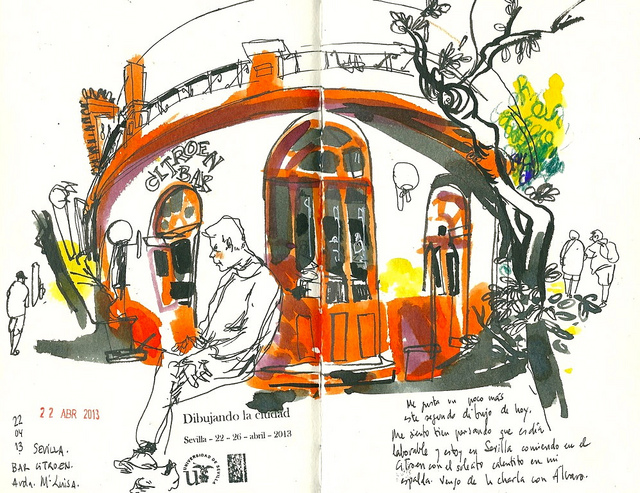 CITROEN
BAR
22 ABR 2013
22
04
13 SEVILLA.
BAR CITROEN.
Avda. Mª Luisa.
Dibujando la ciudad
Sevilla - 22 - 26 - abril - 2013
UNIVERSIDAD DE SEVILLA
us
Me gusta un poco más
este segundo dibujo de hoy.
Me siento bien pensando que es día
laborable y estoy en Sevilla comiendo en el
Citroen con el solecito calentito en mi
espalda. Vengo de la charla con Álvaro.